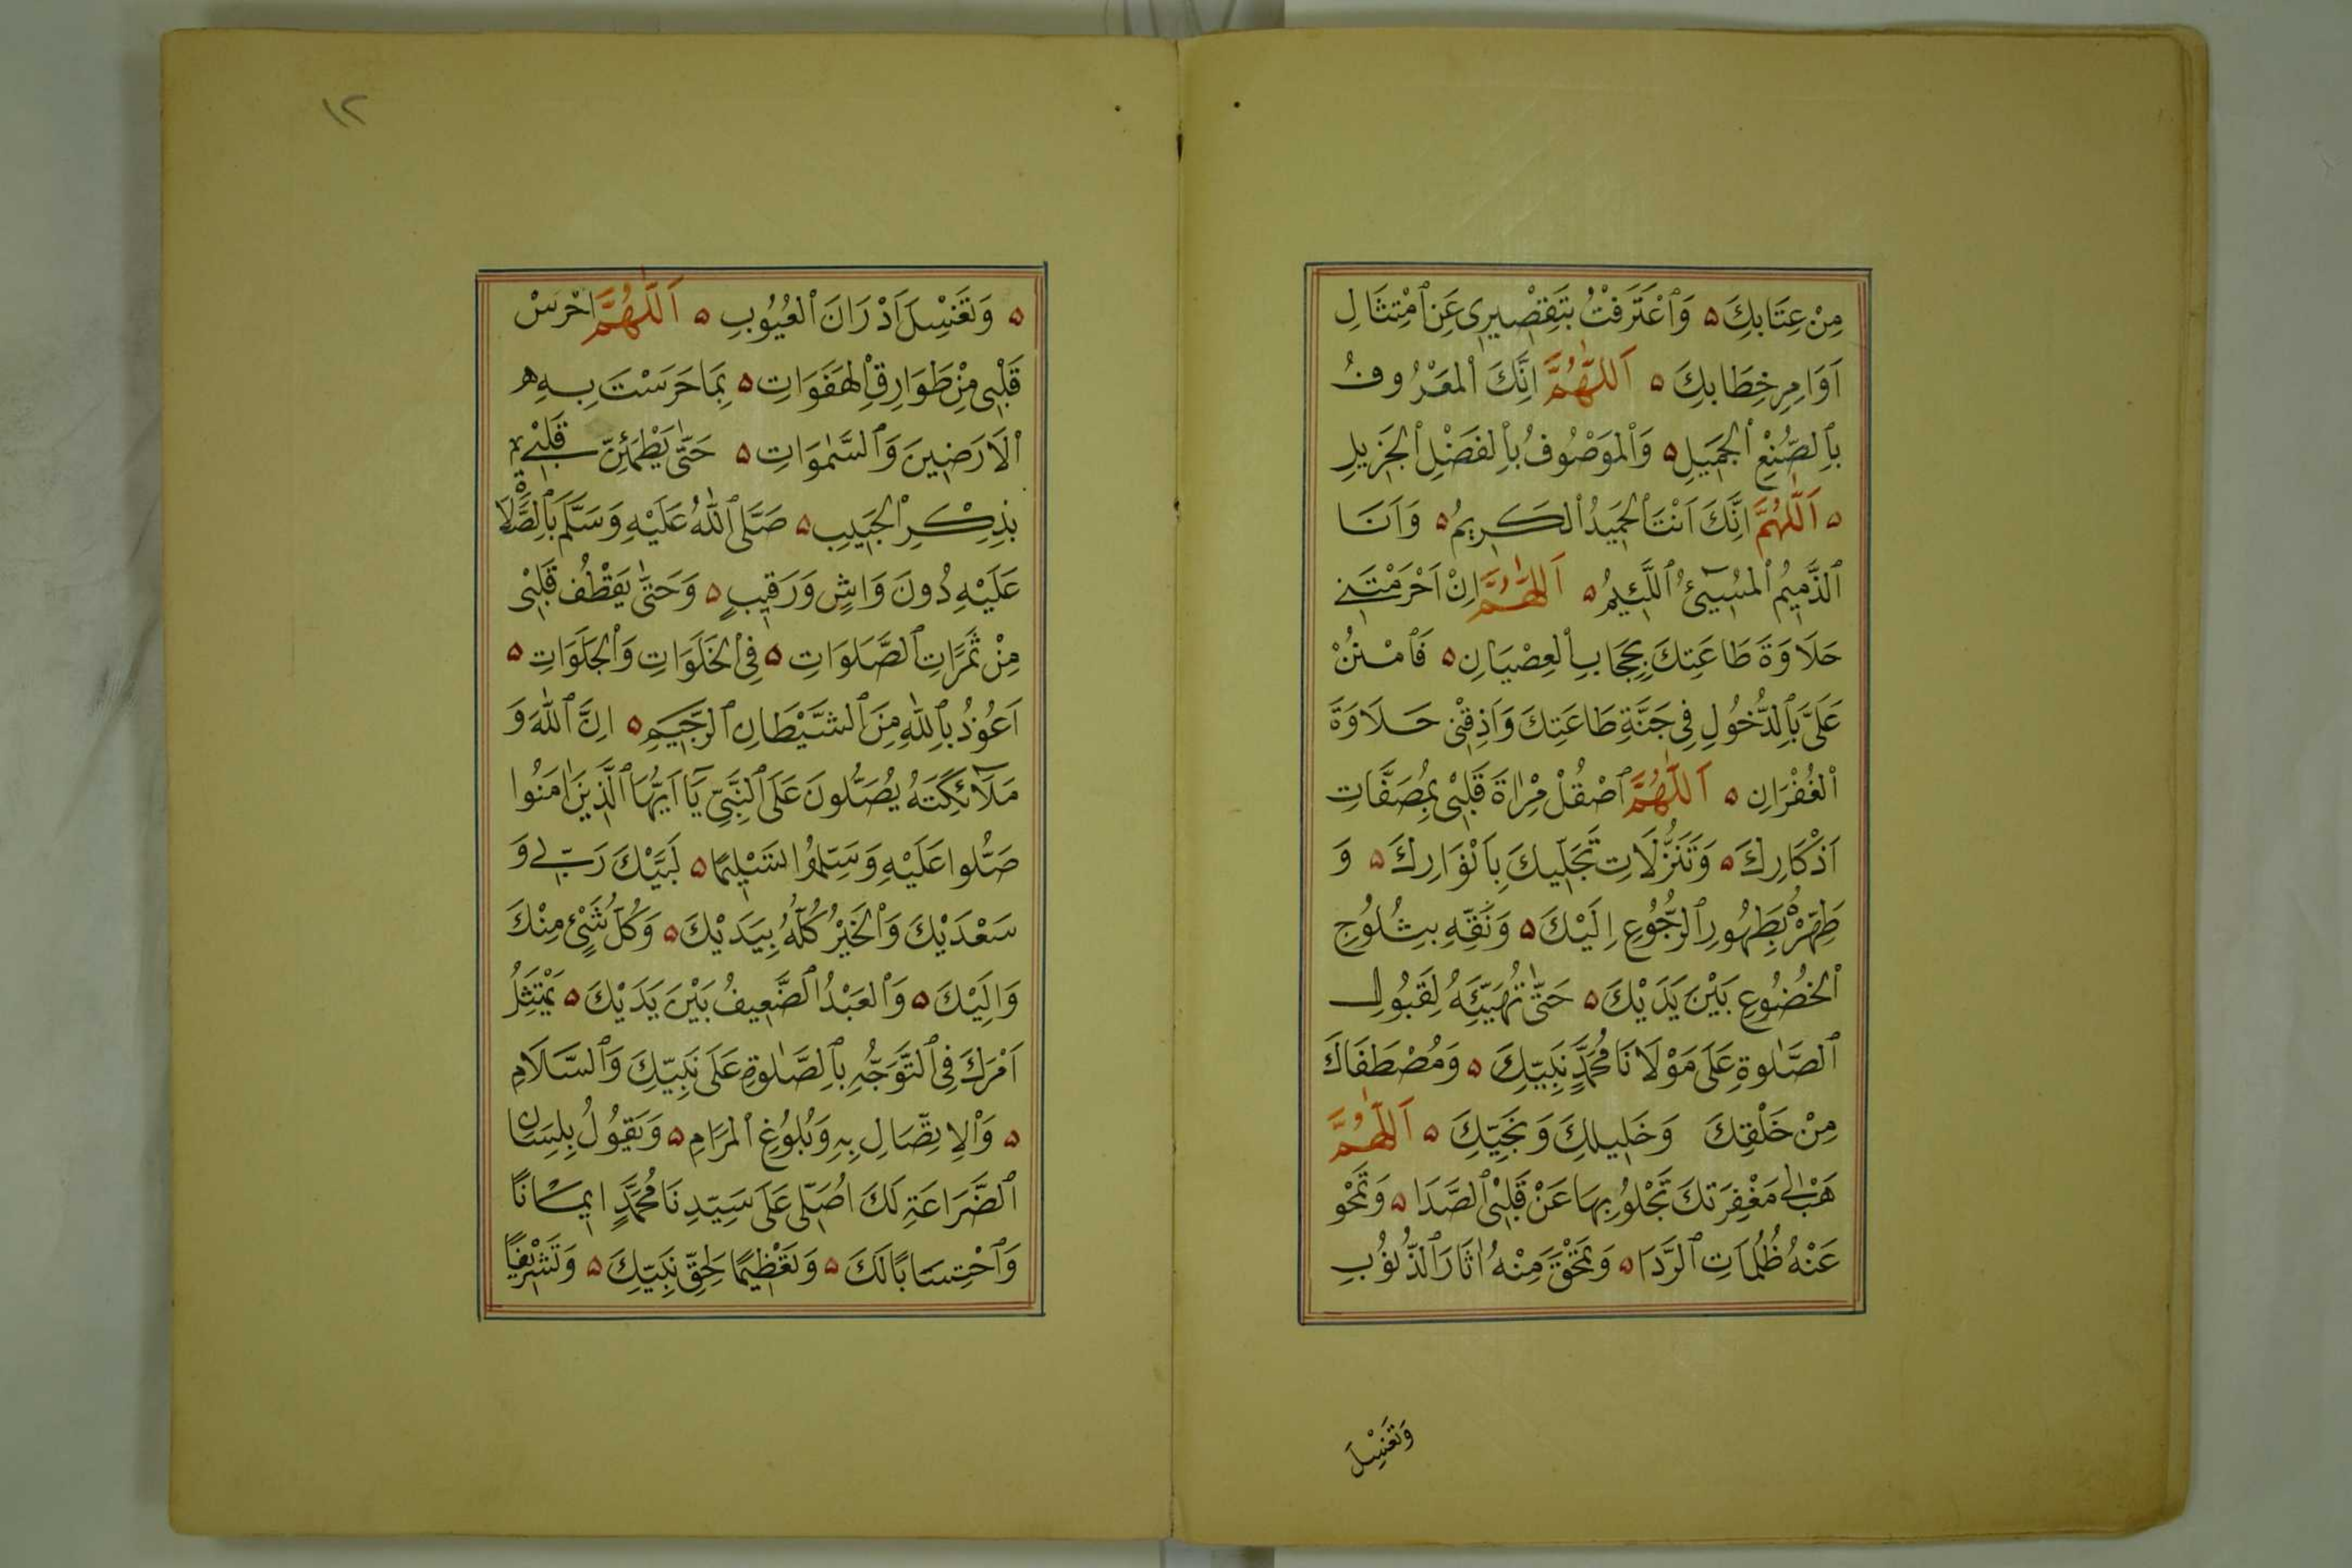 مِنْ عِتَابِكَ ۵ وَٱعْتَرَفْتُ بِتَقْصِيرِى عَنِ ٱمْتِثَالِ
اَوَامِرِ خِطَابِكَ ۵ اَللّٰهُمَّ اِنَّكَ ٱلْمَعْرُوفُ
بِٱلصُّنْعِ ٱلْجَمِيلِ ۵ وَٱلْمَوْصُوفُ بِٱلْفَضْلِ ٱلْجَزِيلِ
۵ اَللّٰهُمَّ اِنَّكَ اَنْتَ ٱلْحَمِيدُ ٱلْكَرِيمُ ۵ وَاَنَا
ٱلذَّمِيمُ ٱلْمُسِيئُ ٱللَّئِيمُ ۵ اَللّٰهُمَّ اِنْ اَحْرَمْتَنِى
حَلَاوَةَ طَاعَتِكَ بِحِجَابِ ٱلْعِصْيَانِ ۵ فَٱمْنُنْ
عَلَىَّ بِٱلدُّخُولِ فِى جَنَّةِ طَاعَتِكَ وَاَذِقْنِى حَلَاوَةَ
ٱلْغُفْرَانِ ۵ اَللّٰهُمَّ ٱصْقُلْ مِرْاٰةَ قَلْبِى بِمُصَفَّاتِ
اَذْكَارِكَ ۵ وَتَنَزُّلَاتِ تَجَلِّيكَ بِاَنْوَارِكَ ۵ وَ
طَهِّرْهُ بِطَهُورِ ٱلرُّجُوعِ اِلَيْكَ ۵ وَنَقِّهِ بِثُلُوجِ
ٱلْخُضُوعِ بَيْنَ يَدَيْكَ ۵ حَتّٰى تُهَيِّئَهُ لِقَبُولِ
ٱلصَّلٰوةِ عَلَى مَوْلَانَا مُحَمَّدٍ نَبِيِّكَ ۵ وَمُصْطَفَاكَ
مِنْ خَلْقِكَ وَخَلِيلِكَ وَنَجِيِّكَ ۵ اَللّٰهُمَّ
هَبْ لِى مَغْفِرَتَكَ تَجْلُوُ بِهَا عَنْ قَلْبِى ٱلصَّدَا ۵ وَتَمْحُو
عَنْهُ ظُلُمَاتِ ٱلرَّدَا ۵ وَتَمْحَقَ مِنْهُ اٰثَارَ ٱلذُّنُوُبِ
وَتَغْسِلَ
١٢
۵ وَتَغْسِلَ اَدْرَانَ ٱلْعُيُوُبِ ۵ اَللّٰهُمَّ احْرَسْ
قَلْبِى مِنْ طَوَارِقِ ٱلْهَفَوَاتِ ۵ بِمَا حَرَسْتَ بِهِ
ٱلْاَرَضِينَ وَٱلسَّمٰوَاتِ ۵ حَتّٰى يَطْمَئِنَّ قَلْبِى
بِذِكْرِ ٱلْحَبِيبِ ۵ صَلَّى ٱللّٰهُ عَلَيْهِ وَسَلَّمَ بِٱلصَّلَاةِ
عَلَيْهِ دُونَ وَاشٍ وَرَقِيبٍ ۵ وَحَتّٰى يَقْطُفَ قَلْبِى
مِنْ ثَمَرَاتِ ٱلصَّلَوَاتِ ۵ فِى ٱلْخَلَوَاتِ وَٱلْجَلَوَاتِ ۵
اَعُوُذُ بِٱللّٰهِ مِنَ ٱلشَّيْطَانِ ٱلرَّجِيمِ ۵ اِنَّ ٱللّٰهَ وَ
مَلَآئِكَتَهُ يُصَلُّونَ عَلَى ٱلنَّبِىِّ يَآ اَيُّهَا ٱلَّذِينَ اٰمَنُوا
صَلُّوا عَلَيْهِ وَسَلِّمُوا تَسْلِيمًا ۵ لَبَّيْكَ رَبِّى وَ
سَعْدَيْكَ وَٱلْخَيْرُ كُلُّهُ بِيَدَيْكَ ۵ وَكُلُّ شَيْئٍ مِنْكَ
وَاِلَيْكَ ۵ وَٱلْعَبْدُ ٱلضَّعِيفُ بَيْنَ يَدَيْكَ ۵ يَمْتَثِلُ
اَمْرَكَ فِى ٱلتَّوَجُّهِ بِٱلصَّلٰوةِ عَلَى نَبِيِّكَ وَٱلسَّلَامِ
۵ وَٱلْاِتِّصَالِ بِهِ وَبُلُوُغِ ٱلْمَرَامِ ۵ وَيَقُوُلُ بِلِسَانِ
ٱلضَّرَاعَةِ لَكَ اُصَلِّى عَلَى سَيِّدِنَا مُحَمَّدٍ اِيمَانًا
وَٱحْتِسَابًا لَكَ ۵ وَتَعْظِيمًا لِحَقِّ نَبِيِّكَ ۵ وَتَشْرِيفًا